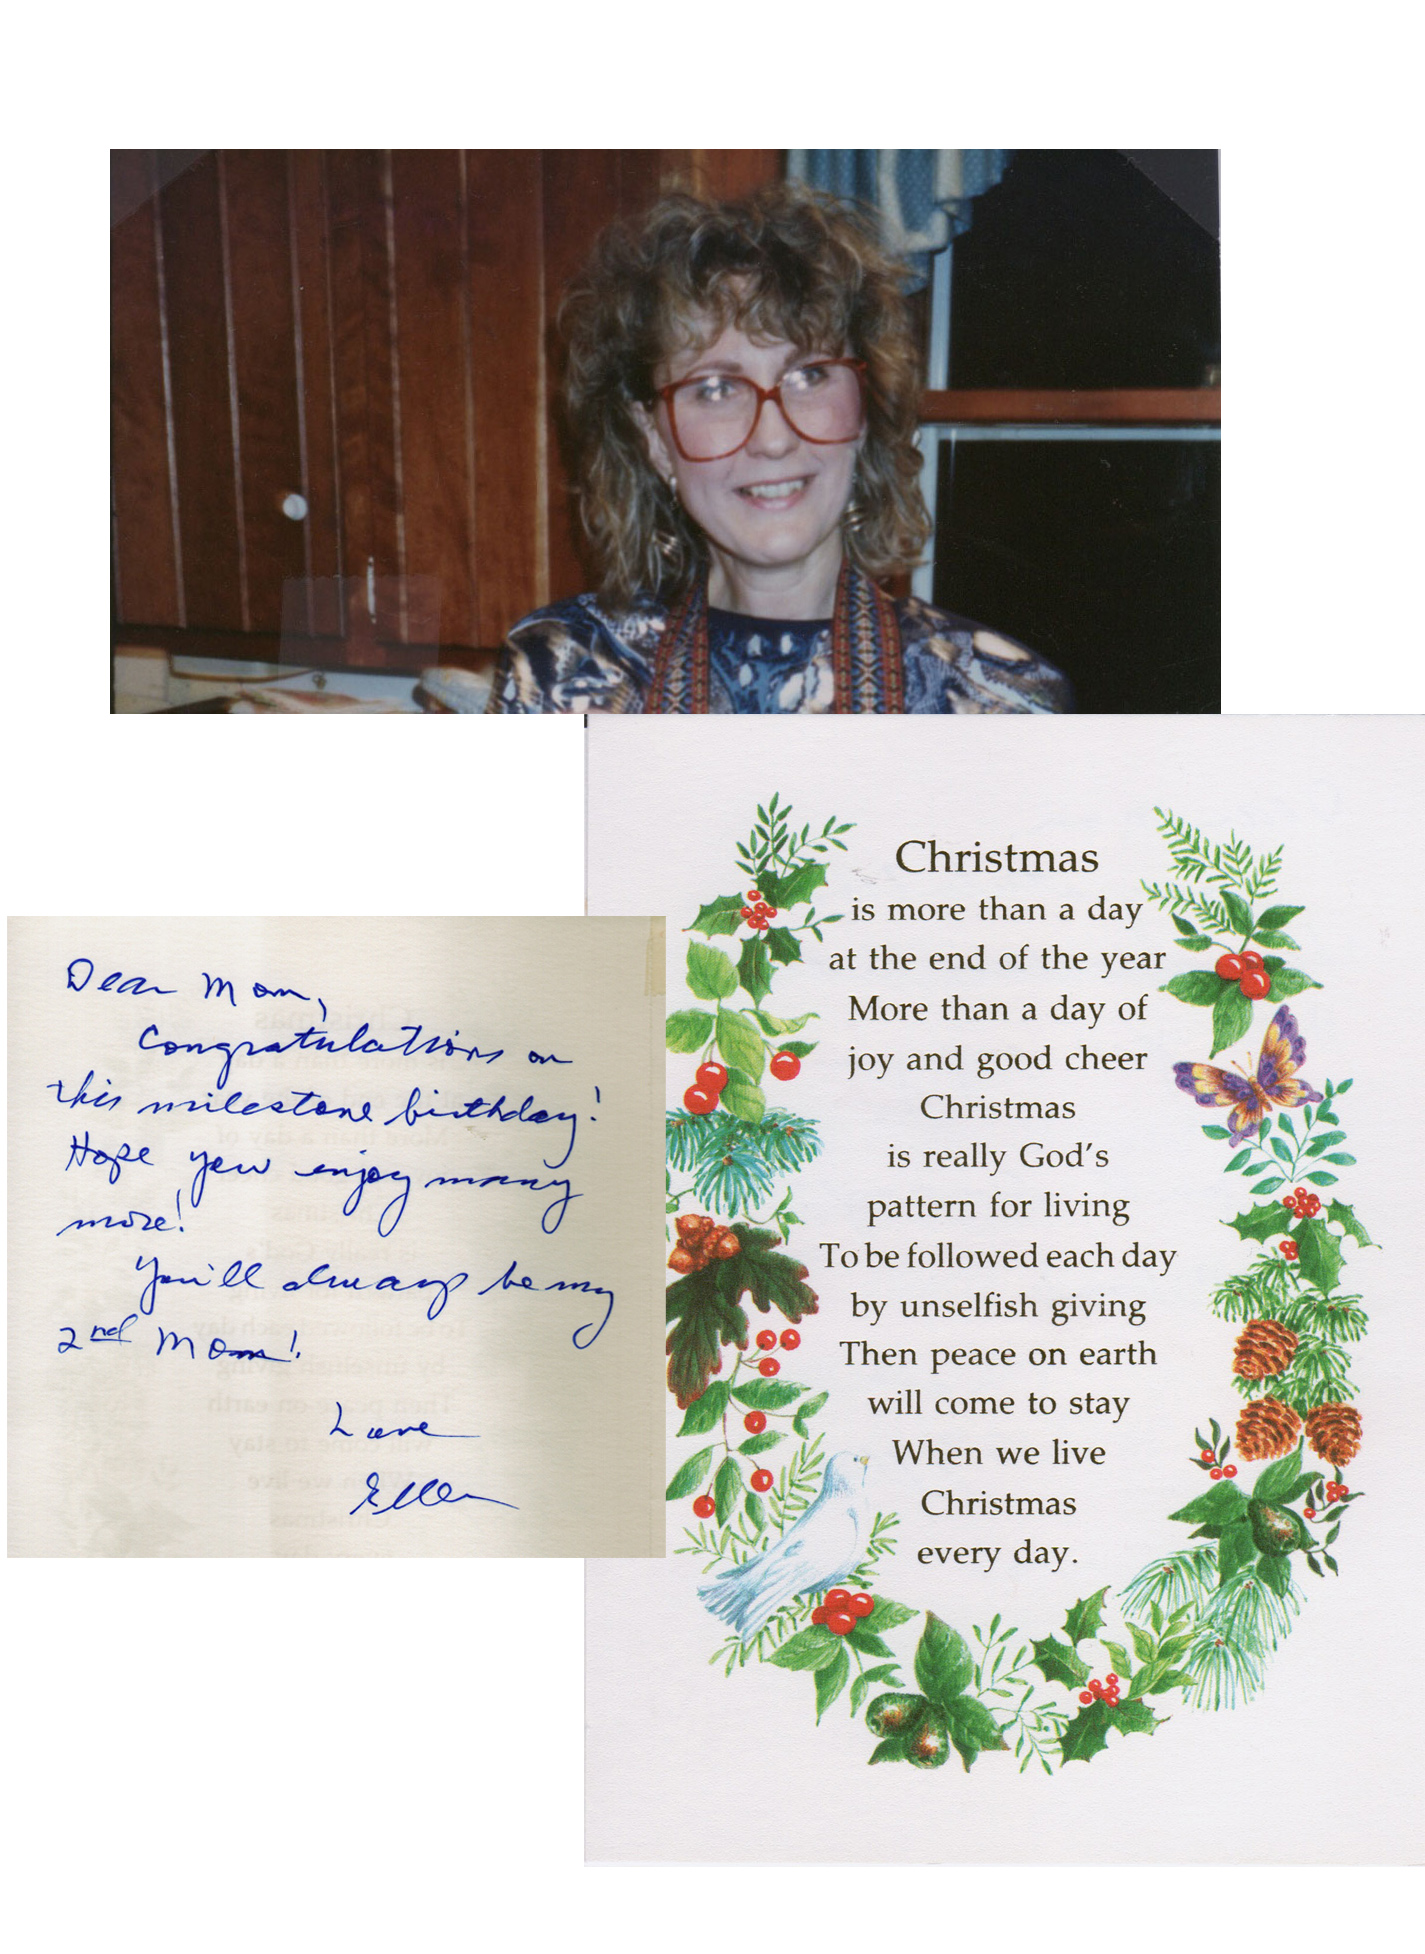 Christmas
is more than a day
at the end of the year
More than a day of
joy and good cheer
Christmas
is really God's
pattern for living
To be followed each day
by unselfish giving
Then peace on earth
will come to stay
When we live
Christmas
every day.
Dear Mom,
Congratulations on
this milestone birthday!
Hope you enjoy many
more!
You'll always be my
2nd Mom!
Love
Ellen